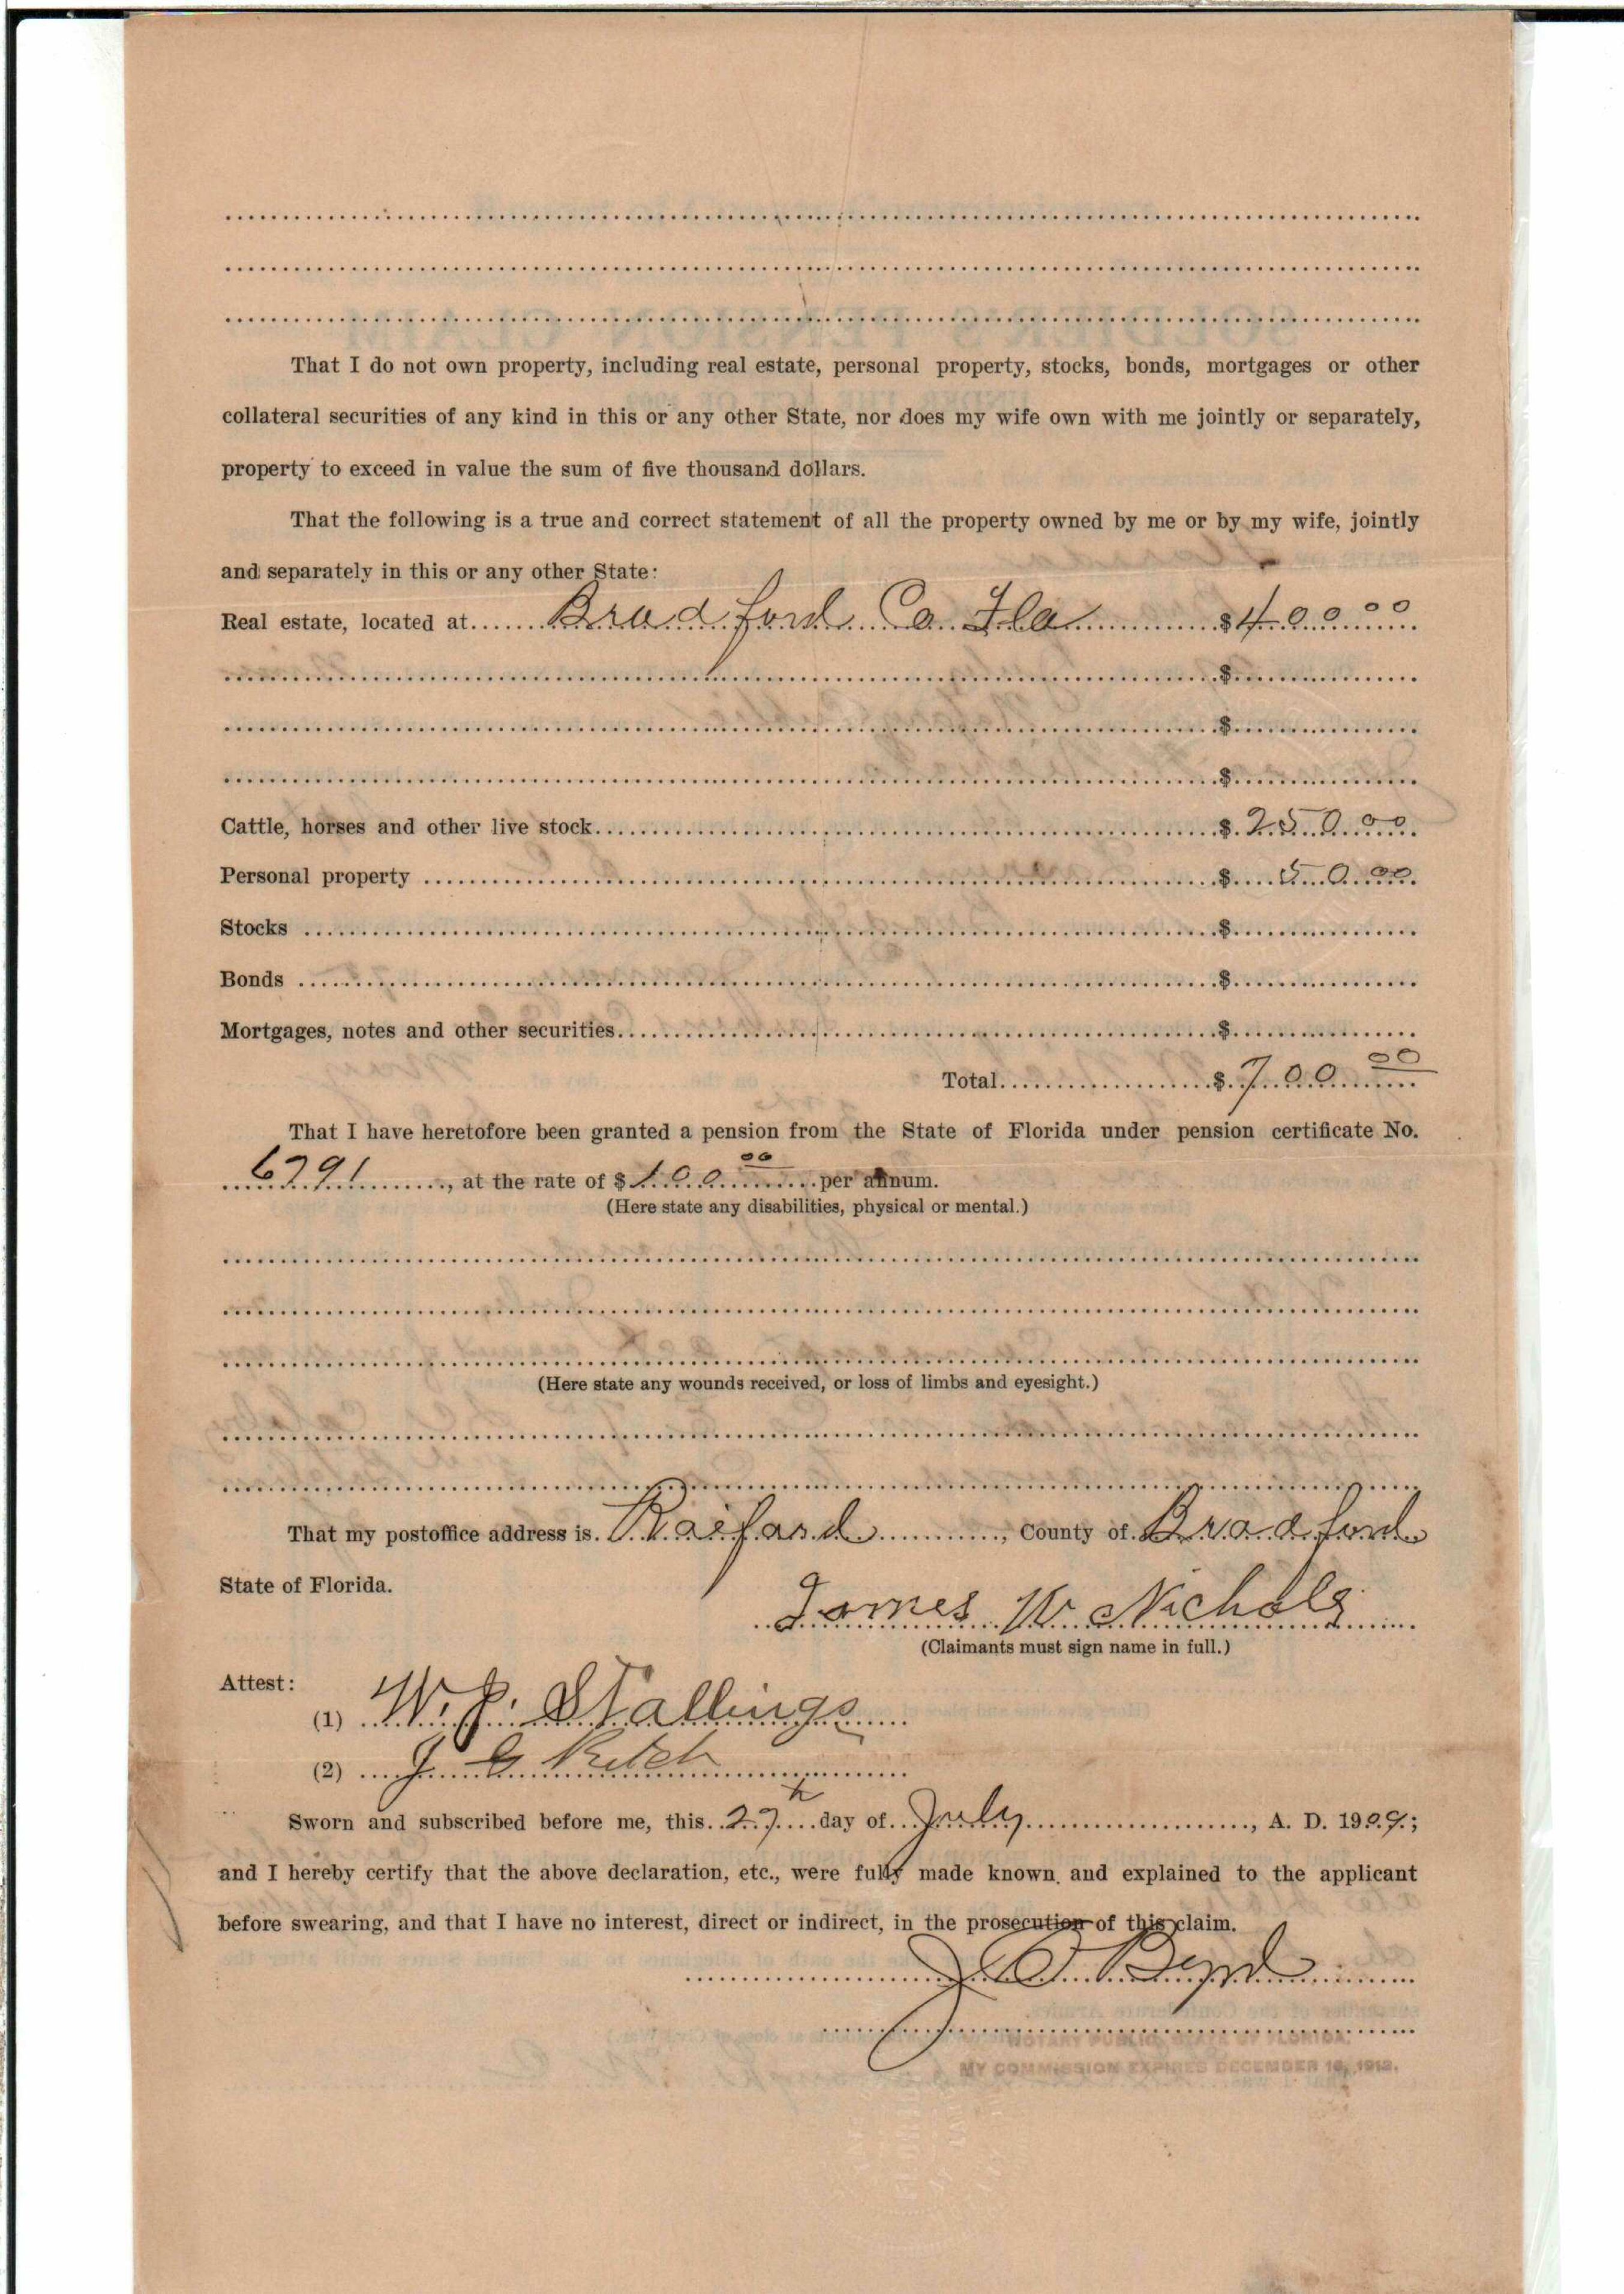 That I do not own property, including real estate, personal property, stocks, bonds, mortgages or other
collateral securities of any kind in this or any other State, nor does my wife own with me jointly or separately,
property to exceed in value the sum of five thousand dollars.
That the following is a true and correct statement of all the property owned by me or by my wife, jointly
and separately in this or any other State:
Real estate, located at Bradford Co Fla $400 00
$
$
$
Cattle, horses and other live stock $250 00
Personal property $50 00
Stocks $
Bonds $
Mortgages, notes and other securities $
Total $700 00
That I have heretofore been granted a pension from the State of Florida under pension certificate No.
6291, at the rate of $100 00 per annum.
(Here state any disabilities, physical or mental.)
(Here state any wounds received, or loss of limbs and eyesight.)
That my postoffice address is Raiford, County of Bradford
State of Florida.
James W Nichols
(Claimants must sign name in full.)
Attest:
(1) W. J. Stallings
(2) J G Ritch
Sworn and subscribed before me, this 27th day of July, A. D. 1909;
and I hereby certify that the above declaration, etc., were fully made known and explained to the applicant
before swearing, and that I have no interest, direct or indirect, in the prosecution of this claim.
NOTARY PUBLIC STATE OF FLORIDA.
MY COMMISSION EXPIRES DECEMBER 16, 1912.